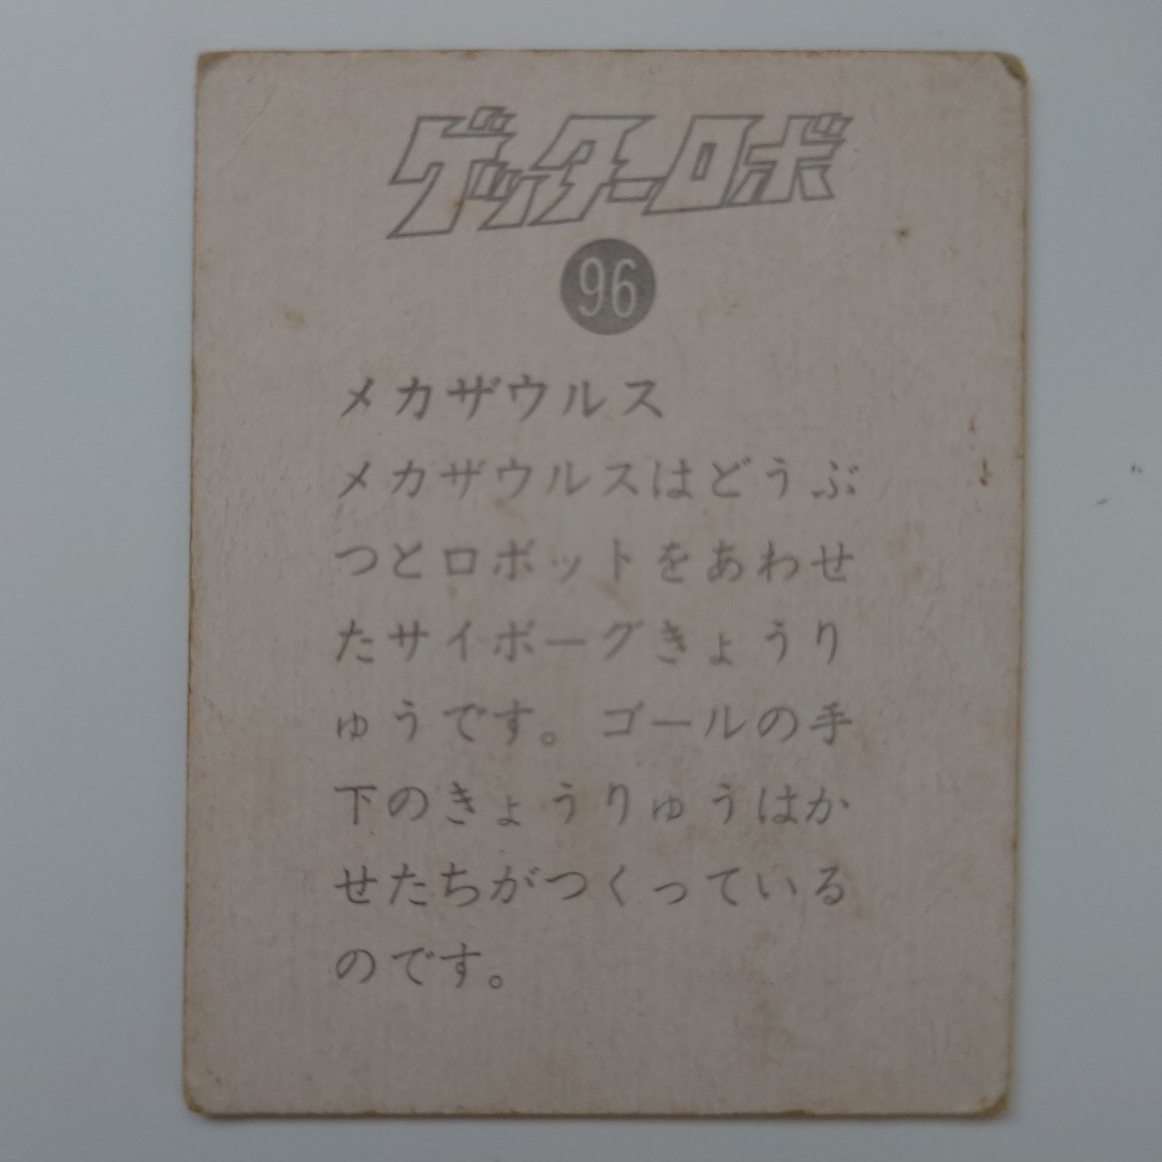 ゲッターロボ
96
メカザウルス
メカザウルスはどうぶ
つとロボットをあわせ
たサイボーグきょうり
ゅうです。ゴールの手
下のきょうりゅうはか
せたちがつくっている
のです。